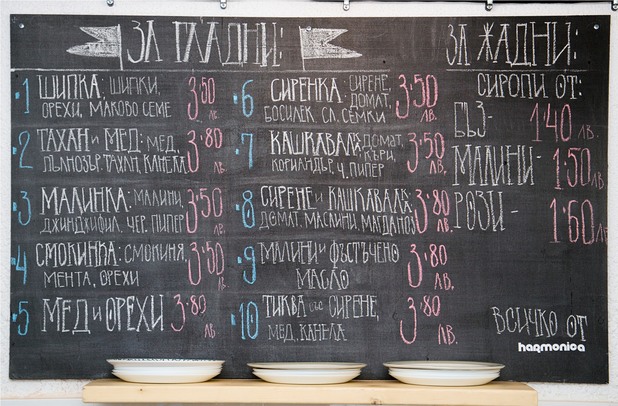 ЗА ГЛАДНИ:
№1 ШИПКА: ШИПКИ, 3.50
ОРЕХИ, МАКОВО СЕМЕ ЛВ.
№2 ТАХАН И МЕД: МЕД, 3.80
ПЪЛНОЗЪР. ТАХАН, КАНЕЛА ЛВ.
№3 МАЛИНКА: МАЛИНИ, 3.50
ДЖИНДЖИФИЛ, ЧЕР. ПИПЕР ЛВ.
№4 СМОКИНКА: СМОКИНЯ, 3.50
МЕНТА, ОРЕХИ ЛВ.
№5 МЕД И ОРЕХИ 3.80
ЛВ.
№6 СИРЕНКА: СИРЕНЕ, 3.50
ДОМАТ,
БОСИЛЕК, СЛ. СЕМКИ ЛВ.
№7 КАШКАВАЛ: ДОМАТ, 3.50
КЪРИ,
КОРИАНДЪР, Ч. ПИПЕР ЛВ.
№8 СИРЕНЕ И КАШКАВАЛ: 3.80
ДОМАТ, МАСЛИНИ, МАГДАНОЗ ЛВ.
№9 МАЛИНИ И ФЪСТЪЧЕНО 3.80
МАСЛО ЛВ.
№10 ТИКВА СЪС СИРЕНЕ, 3.80
МЕД, КАНЕЛА ЛВ.
ЗА ЖАДНИ:
СИРОПИ ОТ:
БЪЗ- 1.40 ЛВ.
МАЛИНИ- 1.50 ЛВ.
РОЗИ - 1.60 ЛВ.
ВСИЧКО ОТ
harmonica